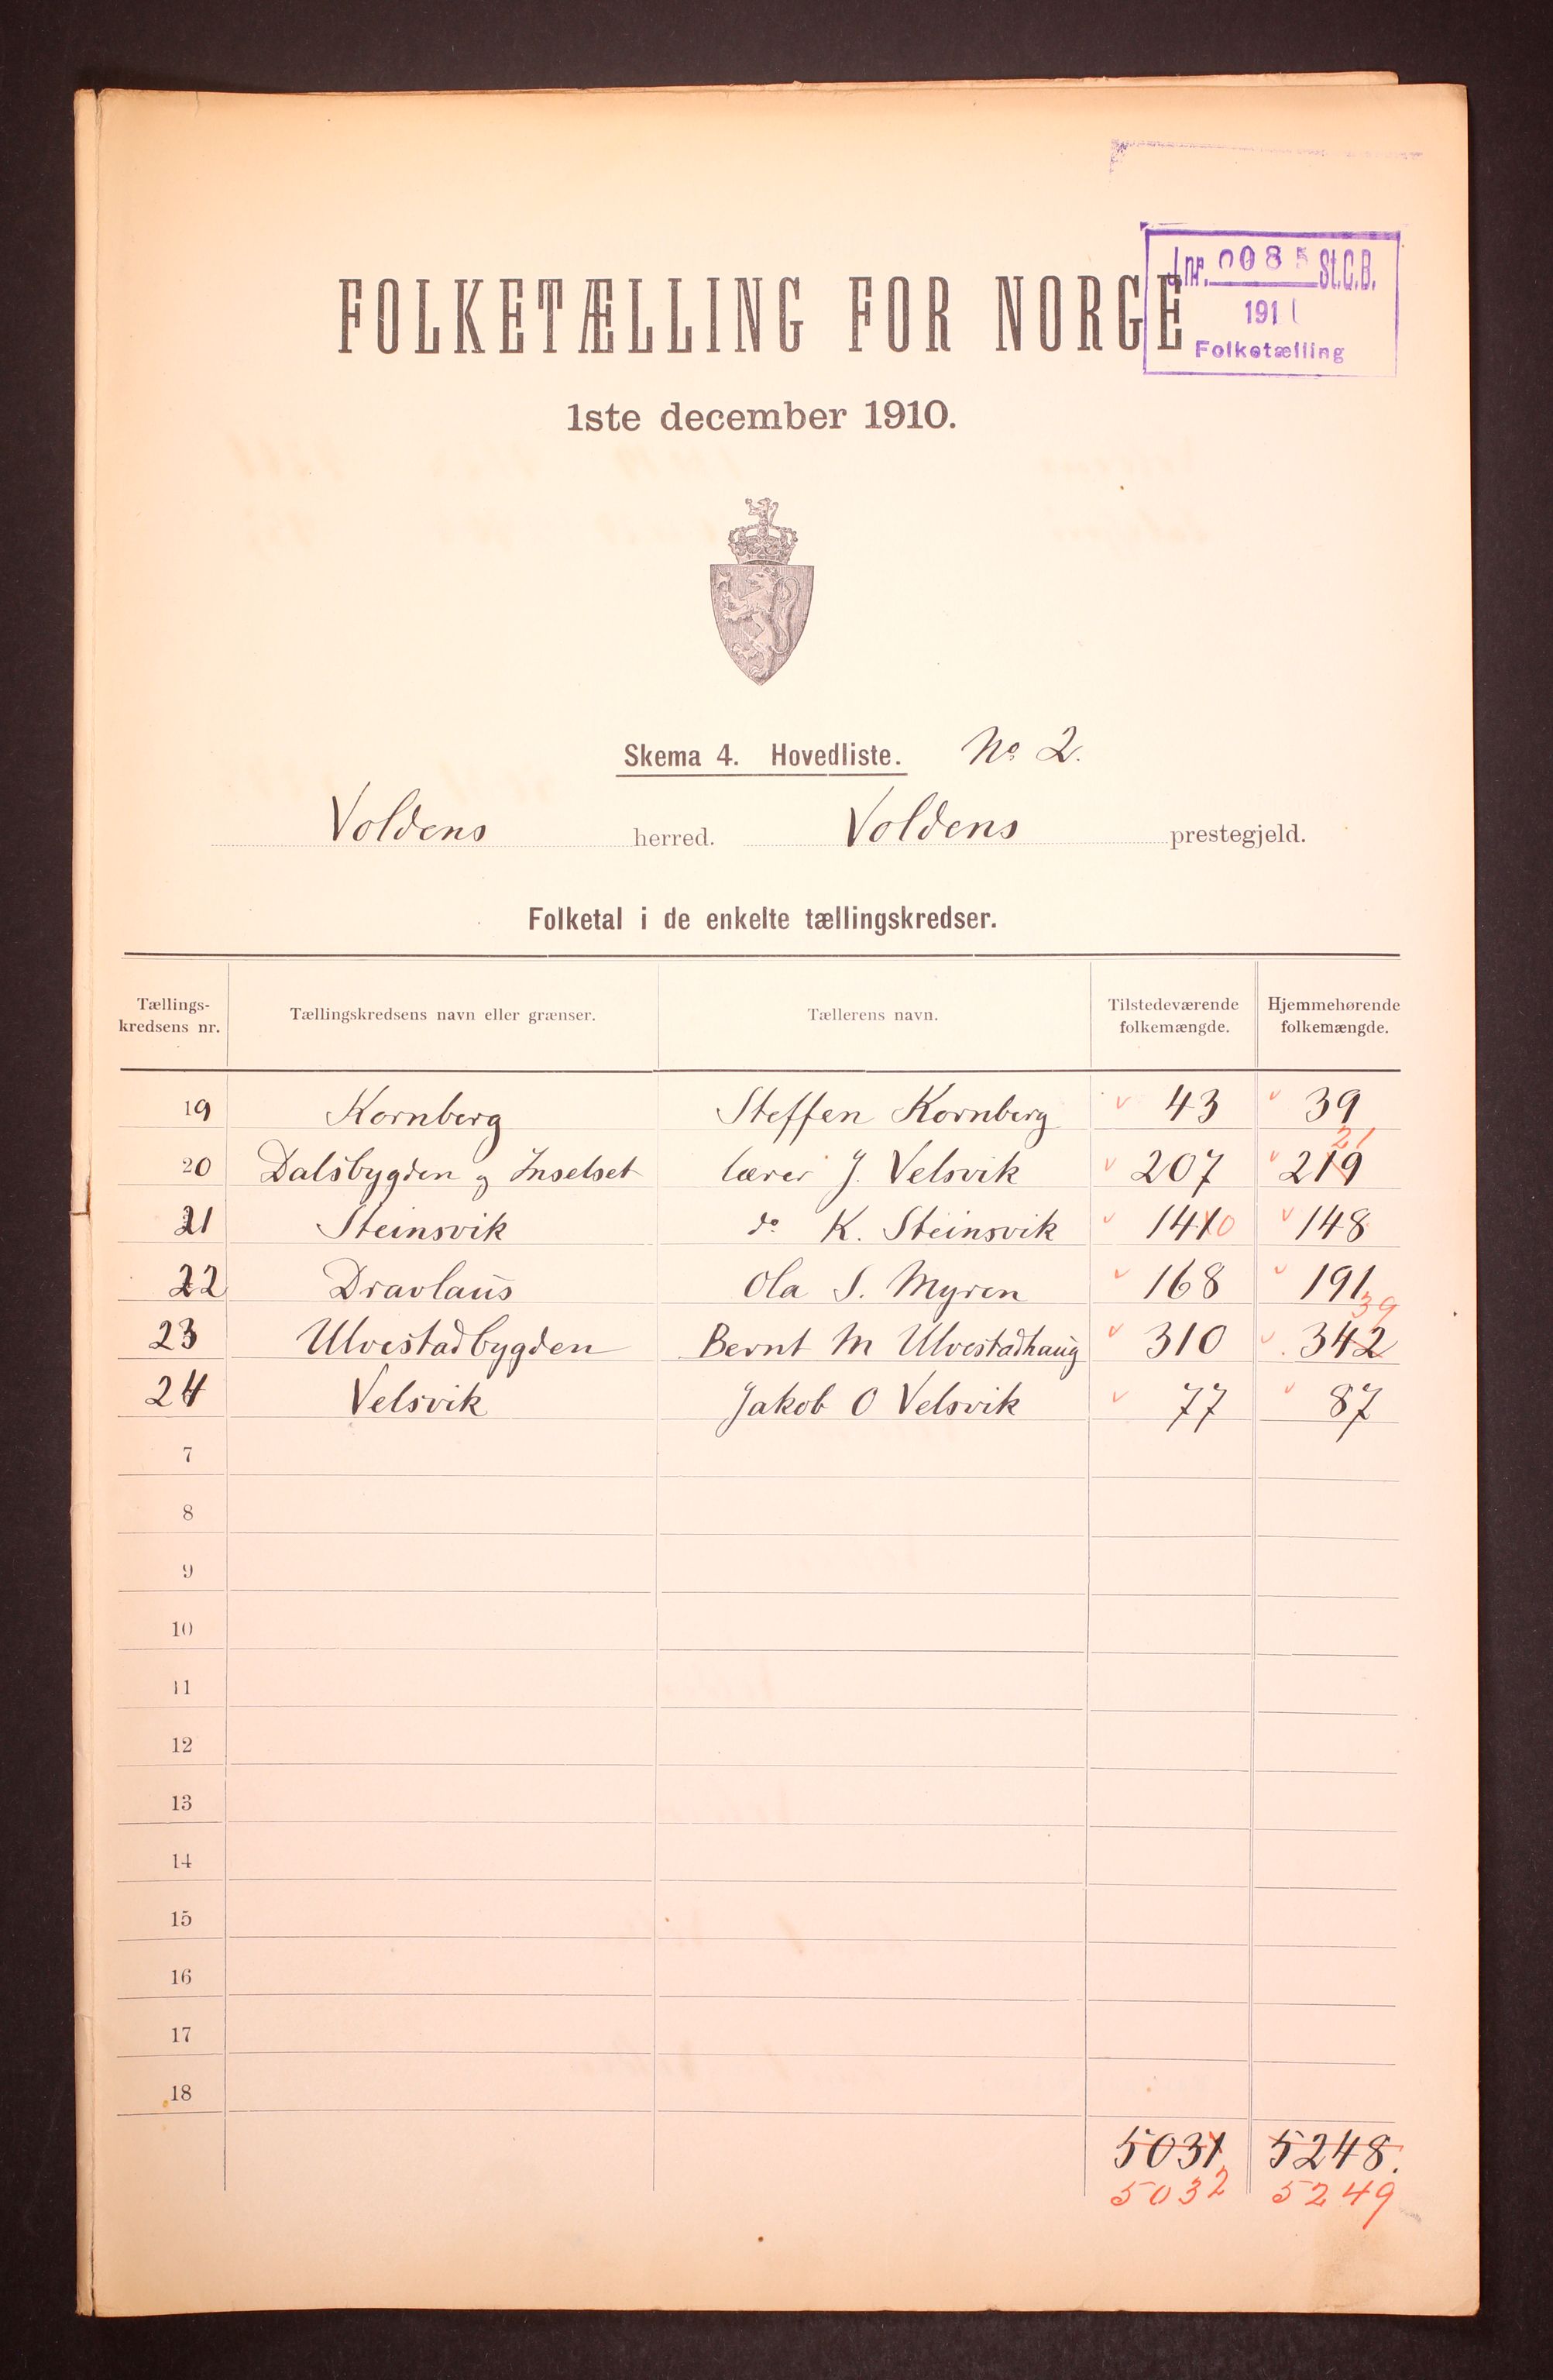 Jnr. 0085 St.C.B.
191
Folketælling
FOLKETÆLLING FOR NORGE
1ste december 1910.
Skema 4. Hovedliste. No 2.
Voldens herred. Voldens prestegjeld.
Folketal i de enkelte tællingskredser.
Tællings-kredsens nr. Tællingskredsens navn eller grænser. Tællerens navn. Tilstedeværende folkemængde. Hjemmehørende folkemængde.
19 Kornberg Steffen Kornberg 43 39
21
20 Dalsbygden og Inselset lærer J. Velsvik 207 219
21 Steinsvik do K. Steinsvik 1410 148
22 Dravlaus Ola S. Myren 168 191
39
23 Ulvestadbygden Bernt M Ulvestadhaug 310 342
24 Velsvik Jakob O Velsvik 77 87
7
8
9
10
11
12
13
14
15
16
17
18
5031 5248.
5032 5249